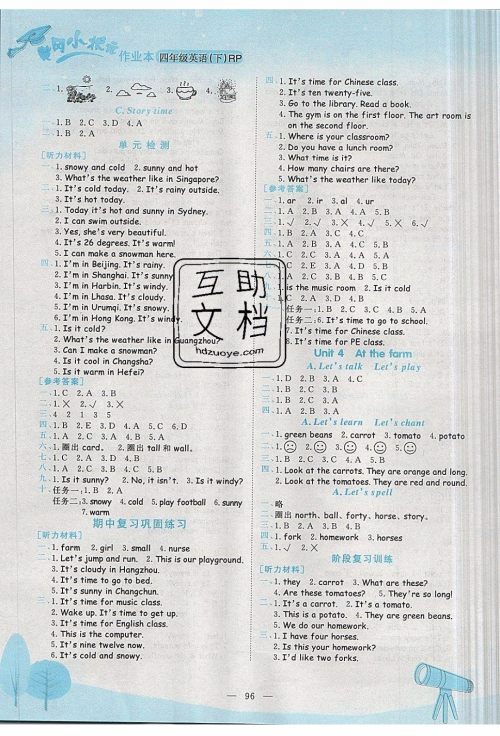 黄冈小状元 作业本 四年级英语(下)RP
二、1. 2. 3. 4.
C. Story time
一、1. B 2. C 3. D 4. A
二、1. B 2. A
单元检测
[听力材料]
一、1. snowy and cold 2. sunny and hot
3. What's the weather like in Singapore?
二、1. It's cold today. 2. It's rainy outside.
3. It's hot today.
三、1. Today it's hot and sunny in Sydney.
2. I can swim outside.
3. Yes, she's very beautiful.
4. It's 26 degrees. It's warm!
5. I can make a snowman here.
四、1. I'm in Beijing. It's rainy.
2. I'm in Shanghai. It's sunny.
3. I'm in Harbin. It's windy.
4. I'm in Lhasa. It's cloudy.
5. I'm in Urumqi. It's snowy.
6. I'm in Hong Kong. It's windy.
五、1. Is it cold?
2. What's the weather like in Guangzhou?
3. Can I make a snowman?
4. Is it cool in Changsha?
5. Is it warm in Hefei?
[参考答案]
一、1. C 2. A 3. B
二、1. × 2. √ 3. ×
三、4 2 1 3 5
四、1. B 2. E 3. D 4. A 5. C 6. D
五、1. A 2. C 3. A 4. B 5. A
六、1. 圈出 card。 2. 圈出 tall 和 wall。
七、1. C 2. A 3. D 4. B
八、1. A 2. C 3. B 4. C 5. B
九、1. Is it sunny? 2. No, it isn't. 3. Is it windy?
十、任务一:1. B 2. A
任务二:3. snowy 4. cold 5. play football 6. sunny
7. warm
期中复习巩固练习
[听力材料]
一、1. farm 2. girl 3. small 4. nurse
二、1. Let's jump and run. 2. This is our playground.
3. It's cloudy in Hangzhou.
4. It's time to go to bed.
5. It's sunny in Changchun.
三、1. It's time for music class.
2. Wake up. It's time to get up.
3. It's time for English class.
4. This is the computer.
5. It's nine twelve now.
6. It's cold and snowy.
四、1. It's time for Chinese class.
2. It's ten twenty-five.
3. Go to the library. Read a book.
4. The gym is on the first floor. The art room is
on the second floor.
五、1. Where is your classroom?
2. Do you have a lunch room?
3. What time is it?
4. How many chairs are there?
5. What's the weather like today?
[参考答案]
一、1. ar 2. ir 3. al 4. ur
二、1. A 2. B 3. B 4. A 5. B
三、1. √ 2. √ 3. × 4. √ 5. × 6. √
四、1. B 2. A 3. C 4. C
五、1. B 2. A 3. A 4. C 5. B
六、1. C 2. C 3. A 4. A 5. A
七、1. B 2. A 3. B 4. C 5. A
八、1. A 2. C 3. B 4. B 5. C
九、1. is the music room 2. Is it cold
1. C 2. A 3. D 4. B
任务一:1. B 2. C 3. C 4. B 5. A
任务二:6. It's time to go to school.
7. It's time for Chinese class.
8. It's time for PE class.
Unit 4 At the farm
A. Let's talk Let's play
一、1. D 2. B 3. A
二、1. A 2. B 3. B 4. C
三、1. B 2. C 3. B
四、1. A 2. D 3. B
A. Let's learn Let's chant
一、1. green beans 2. carrot 3. tomato 4. potato
二、1. 2. 3. 4. 5.
三、1. B 2. C 3. C 4. A 5. A
四、1. Look at the carrots. They are orange and long.
2. Look at the tomatoes. They are red and round.
A. Let's spell
一、略
二、圈出 north、ball、forty、horse、story。
三、1. B 2. A 3. B 4. B
四、1. fork 2. homework 3. horses
五、1. √ 2. ×
阶段复习训练
[听力材料]
一、1. they 2. carrot 3. What are these?
4. Are these tomatoes? 5. They're so long!
二、1. It's a carrot. 2. It's a tomato.
3. This is a potato. 4. They are green beans.
5. We do our homework.
三、1. I have four horses.
2. Is this your homework?
3. I'd like two forks.
互助
文档
hdzuoye.com
96